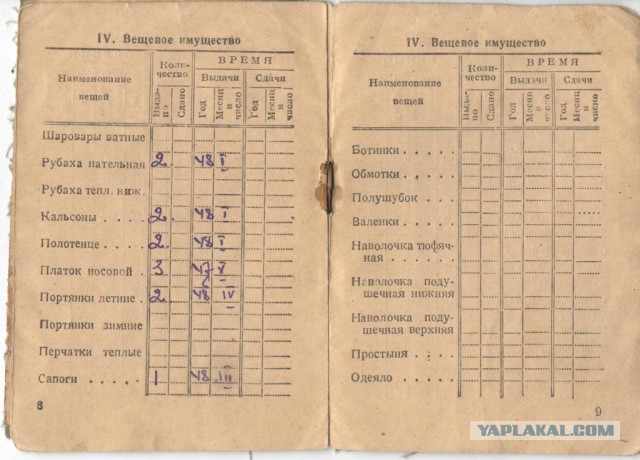 IV. Вещевое имущество
Наименование вещей
Количество
ВРЕМЯ
Выдачи
Сдачи
Выдано
Сдано
Год
Месяц и число
Год
Месяц и число
Шаровары ватные
Рубаха нательная 2 48 I
Рубаха тепл. ниж.
Кальсоны . . . . 2 48 I
Полотенце . . . 2 48 I
Платок носовой . 3 47 V
Портянки летние . 2 48 IV
Портянки зимние
Перчатки теплые
Сапоги . . . . . 1 48 III
8
IV. Вещевое имущество
Наименование вещей
Количество
ВРЕМЯ
Выдачи
Сдачи
Выдано
Сдано
Год
Месяц и число
Год
Месяц и число
Ботинки . . . . .
Обмотки . . . . .
Полушубок . . .
Валенки . . . . .
Наволочка тюфяч-
ная . . . . . .
Наволочка поду-
шечная нижняя
Наволочка поду-
шечная верхняя
Простыня . . . .
Одеяло . . . . .
9
YAPLAKAL.COM